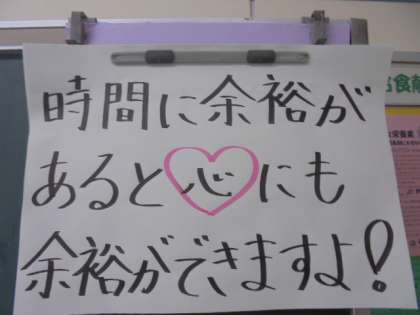 時間に余裕が
あると心にも
余裕ができますよ!